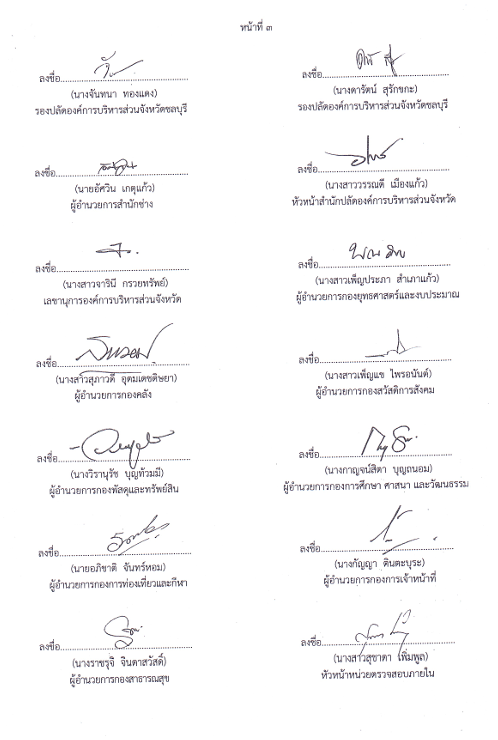 หน้าที่ ๓
ลงชื่อ
(นางจันทนา ทองแดง)
รองปลัดองค์การบริหารส่วนจังหวัดชลบุรี
ลงชื่อ
(นางดารัตน์ สุรักขกะ)
รองปลัดองค์การบริหารส่วนจังหวัดชลบุรี
ลงชื่อ
(นายอัศวิน เกตุแก้ว)
ผู้อำนวยการสำนักช่าง
ลงชื่อ
(นางสาววรรณดี เมืองแก้ว)
หัวหน้าสำนักปลัดองค์การบริหารส่วนจังหวัด
ลงชื่อ
(นางสาวจารินี กรวยทรัพย์)
เลขานุการองค์การบริหารส่วนจังหวัด
ลงชื่อ
(นางสาวเพ็ญประภา สำเภาแก้ว)
ผู้อำนวยการกองยุทธศาสตร์และงบประมาณ
ลงชื่อ
(นางสาวสุภาวดี อุดมเดชดิษยา)
ผู้อำนวยการกองคลัง
ลงชื่อ
(นางสาวเพ็ญแข ไพรอนันต์)
ผู้อำนวยการกองสวัสดิการสังคม
ลงชื่อ
(นางวิรานุรัช บุญท้วมมี)
ผู้อำนวยการกองพัสดุและทรัพย์สิน
ลงชื่อ
(นางกาญจน์สิตา บุญถนอม)
ผู้อำนวยการกองการศึกษา ศาสนา และวัฒนธรรม
ลงชื่อ
(นายอภิชาติ จันทร์หอม)
ผู้อำนวยการกองการท่องเที่ยวและกีฬา
ลงชื่อ
(นางกัญญา ตินตะบุระ)
ผู้อำนวยการกองการเจ้าหน้าที่
ลงชื่อ
(นางราชรุจิ จินดาสวัสดิ์)
ผู้อำนวยการกองสาธารณสุข
ลงชื่อ
(นางสาวสุชาดา เพิ่มพูล)
หัวหน้าหน่วยตรวจสอบภายใน